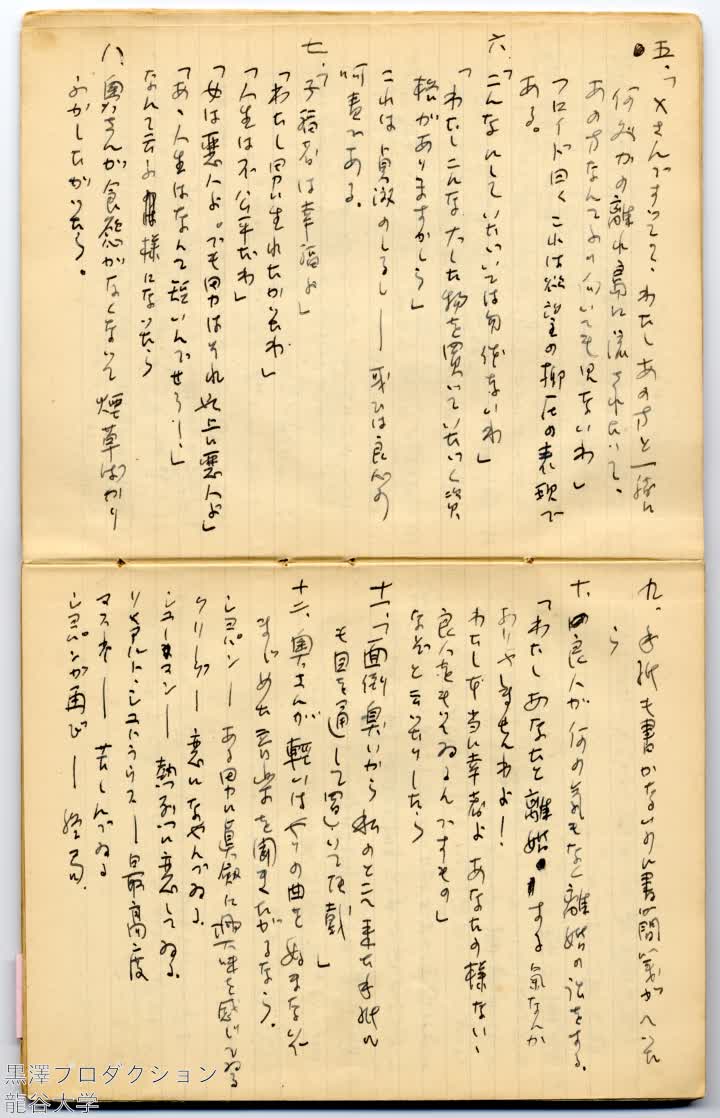 五、「×さんですって？、わたしあの方と一緒に
何処かの離れ島に流されたって、
あの方なんてふり向いても見ないわ」
フロイド曰くこれは欲望の抑圧の表現で
ある。
六、「こんなにしていたいては勿体ないわ」
「わたしこんな大した物を買っていたいく資
格がありますかしら」
これは貞淑のしるし——或ひは良心の
呵責である。
七、「子福者は幸福よ」
「わたし男に生れたかったわ」
「人生は不公平だわ」
「女は悪人よ。でも男はそれ以上に悪人よ」
「あゝ人生はなんて短いんでせう！」
なんて云ふ様になったら
八、奥さんが食慾がなくなって煙草ばかり
ふかしたがったら。
九、手紙も書かないのに書簡箋がへった
ら
十、良人が何の気もなく離婚の話をする。
「わたしあなたと離婚する氣なんか
ありやしませんわよ！
わたし本当に幸福よあなたの様ないゝ
良人をもってゐるんですもの」
などと云ったりしたら
十一、「面倒臭いから私のとこへ来た手紙に
も目を通して置いて頂戴」
十二、奥さんが軽いはやりの曲を好まないで
まじめな音楽を聞きたがるなら。
ショパン——ある男に真剣に興味を感じてゐる
グリーグ——恋になやんでゐる。
シューマン——熱烈に恋してゐる。
リヒアルト・シュトラウス——最高度
マスネー——苦しんでゐる
ショパンが再び——結局。
黒澤プロダクション
龍谷大学